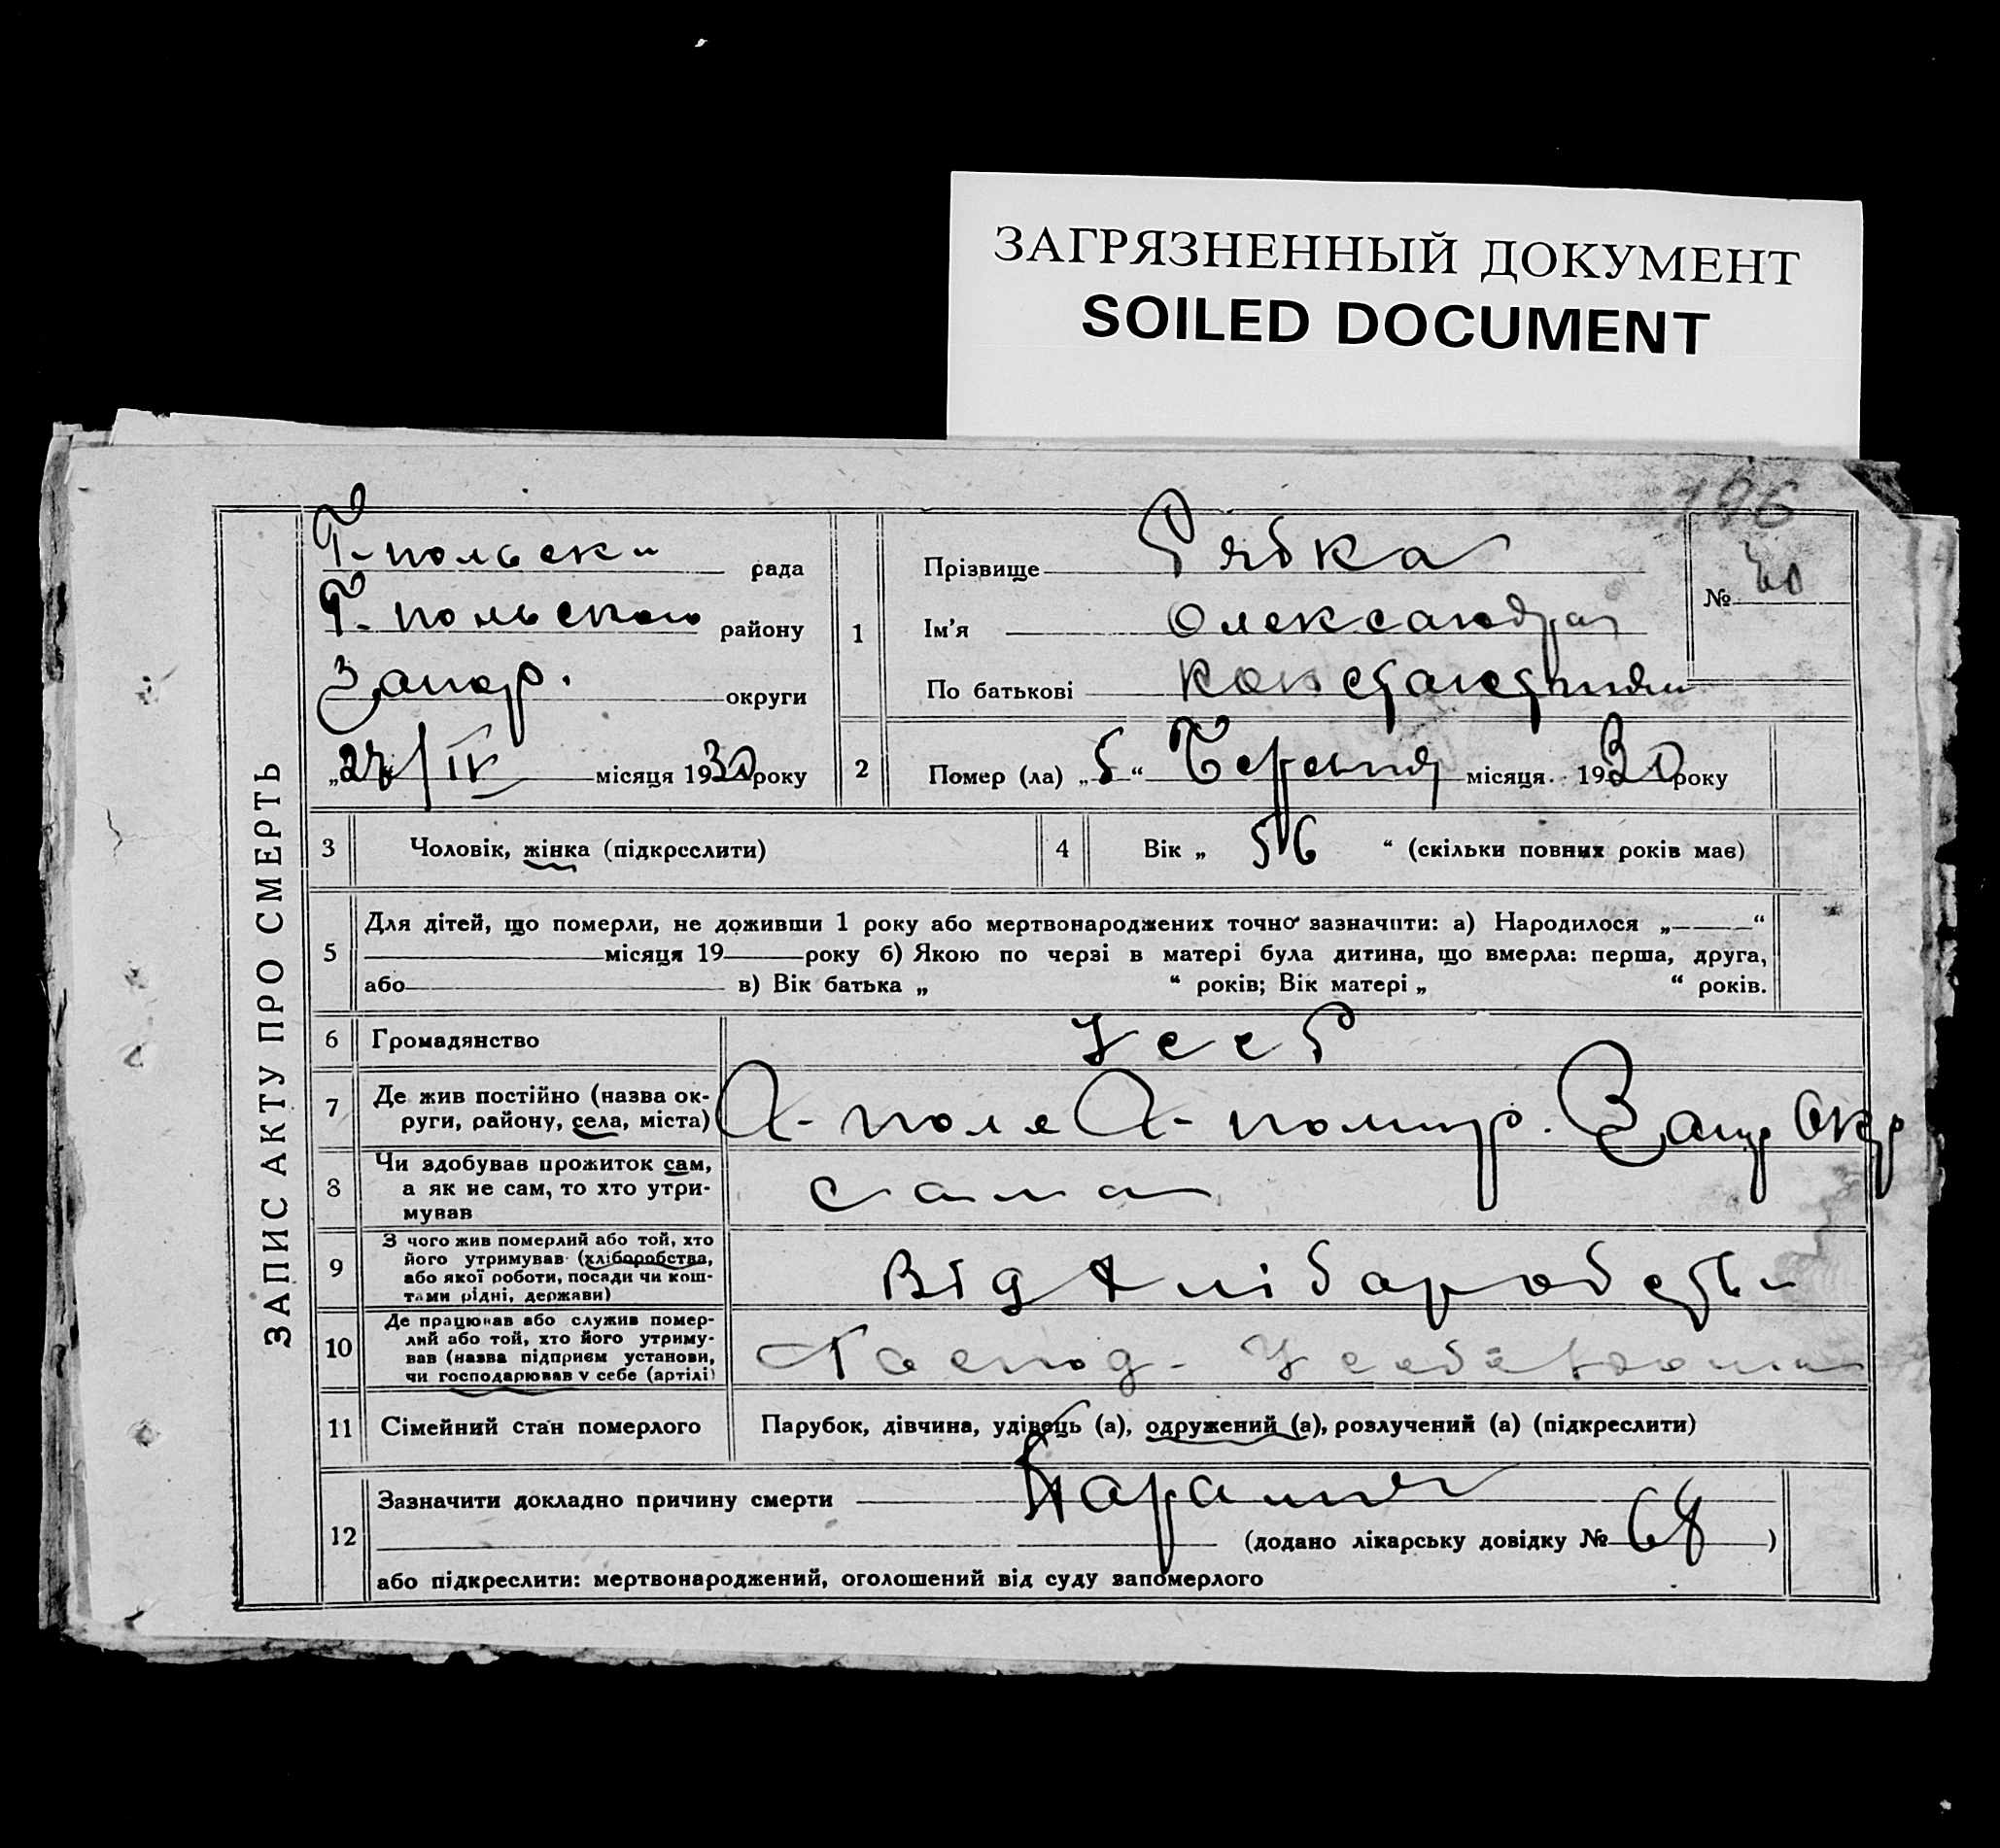 ЗАГРЯЗНЕННЫЙ ДОКУМЕНТ
SOILED DOCUMENT
196
ЗАПИС АКТУ ПРО СМЕРТЬ
Г-польська рада
Г-польского району
Запор. округи
„27/IV місяця 1930 року
1
Прізвище Рябка
Ім’я Олександра
По батькові Константинівна
№ 20
2 Помер (ла) „5“ Березня місяця 1930 року
3 Чоловік, жінка (підкреслити)
4 Вік „ 56 “ (скільки повних років має)
5 Для дітей, що померли, не доживши 1 року або мертвонароджених точно зазначити: а) Народилося „——“
місяця 19 року б) Якою по черзі в матері була дитина, що вмерла: перша, друга,
або в) Вік батька „ “ років; Вік матері „ “ років.
6 Громадянство УССР
7 Де жив постійно (назва ок-
руги, району, села, міста) Г-поле Г-пол. р. Запор Окр
8 Чи здобував прожиток сам,
а як не сам, то хто утри-
мував сама
9 З чого жив померлий або той, хто
його утримував (хліборобства,
або якої роботи, посади чи кош-
тами рідні, держави) Від хлібаробства
10 Де працював або служив помер-
лий або той, хто його утриму-
вав (назва підприєм установи,
чи господарював у себе (артілі) Господ- У себе
11 Сімейний стан померлого Парубок, дівчина, удівець (а), одружений (а), розлучений (а) (підкреслити)
12 Зазначити докладно причину смерти
(додано лікарську довідку № 68 )
або підкреслити: мертвонароджений, оголошений від суду запомерлого